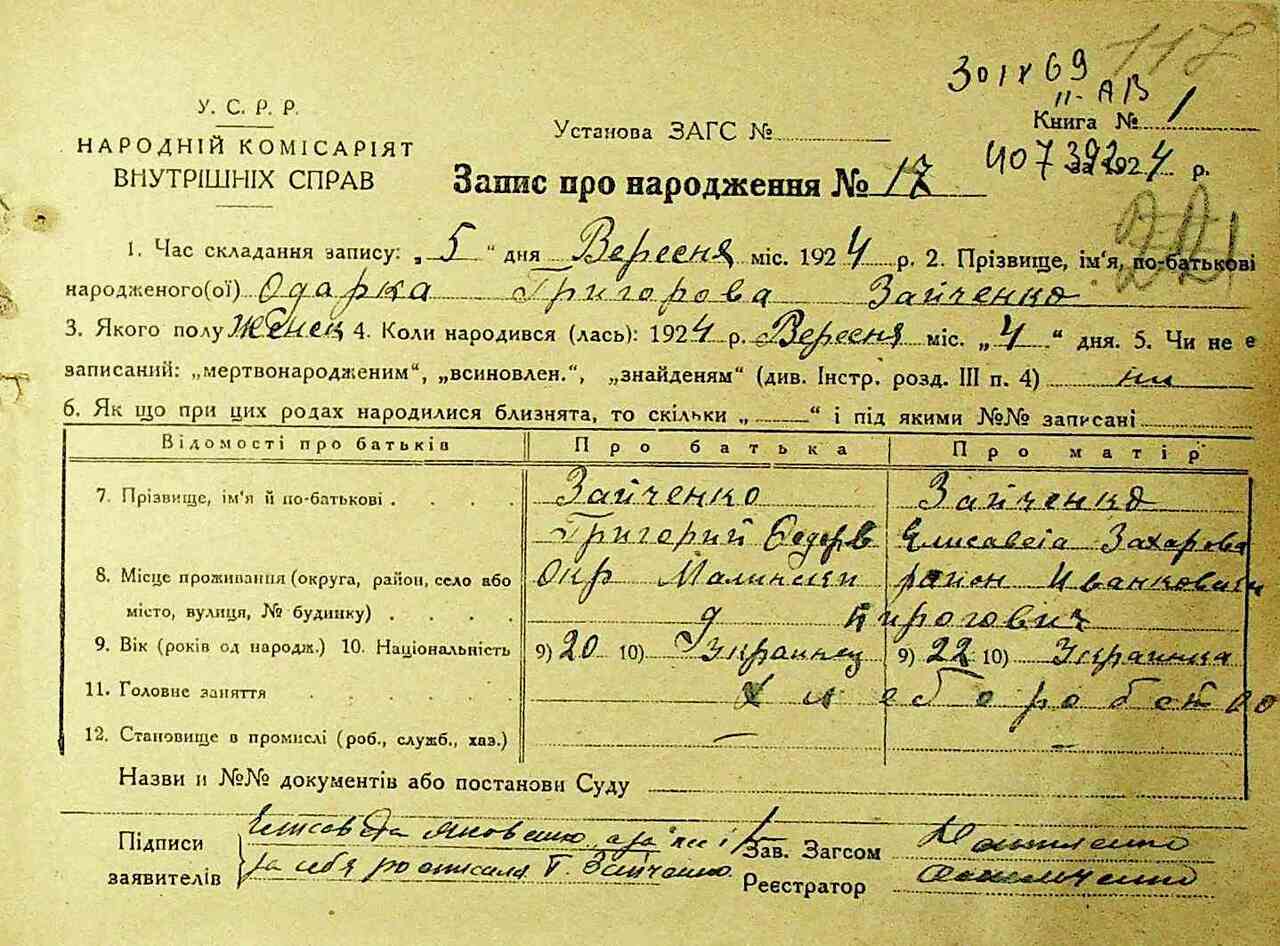 117
У. С. Р. Р.
НАРОДНІЙ КОМІСАРІЯТ
ВНУТРІШНІХ СПРАВ
Установа ЗАГС №
Книга № 1
407 392
1924 р.
Запис про народження № 17
1. Час складання запису: „5“ дня Вересня міс. 1924 р. 2. Прізвище, ім'я, по-батькові
народженого(ої) Одарка Григорова Зайченко
3. Якого полу Женск 4. Коли народився (лась): 1924 р. Вересня міс. „4“ дня. 5. Чи не є
записаний: „мертвонародженим“, „всиновлен.“, „знайденям“ (див. Інстр. розд. III п. 4) ни
6. Як що при цих родах народилися близнята, то скільки „ “ і під якими №№ записані
Відомості про батьків Про батька Про матір
7. Прізвище, ім'я й по-батькові . . . . Зайченко Зайченко
Григорий Федоров Елисавета Захарова
8. Місце проживання (округа, район, село або Окр Малински район Иванкович
місто, вулиця, № будинку) . . . . д Пирогович
9. Вік (років од народж.) 10. Національність 9) 20 10) Украинец 9) 22 10) Украинка
11. Головне заняття . . . . хлеборобство
12. Становище в промислі (роб., служб., хаз.) — —
Назви и №№ документів або постанови Суду
Підписи
заявителів
за себя росписался Г. Зайченко
Зав. Загсом
Реєстратор